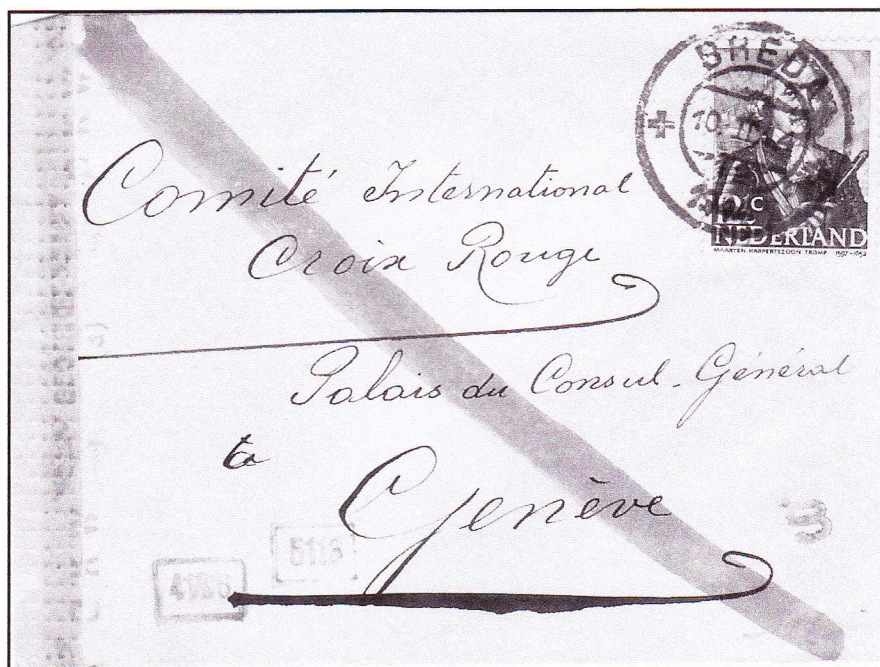 BREDA
NEDERLAND
MAARTEN HARPERTSZOON TROMP 1597-1653
Comité International
Croix Rouge
Palais du Consul-Général
te
Genève
5113